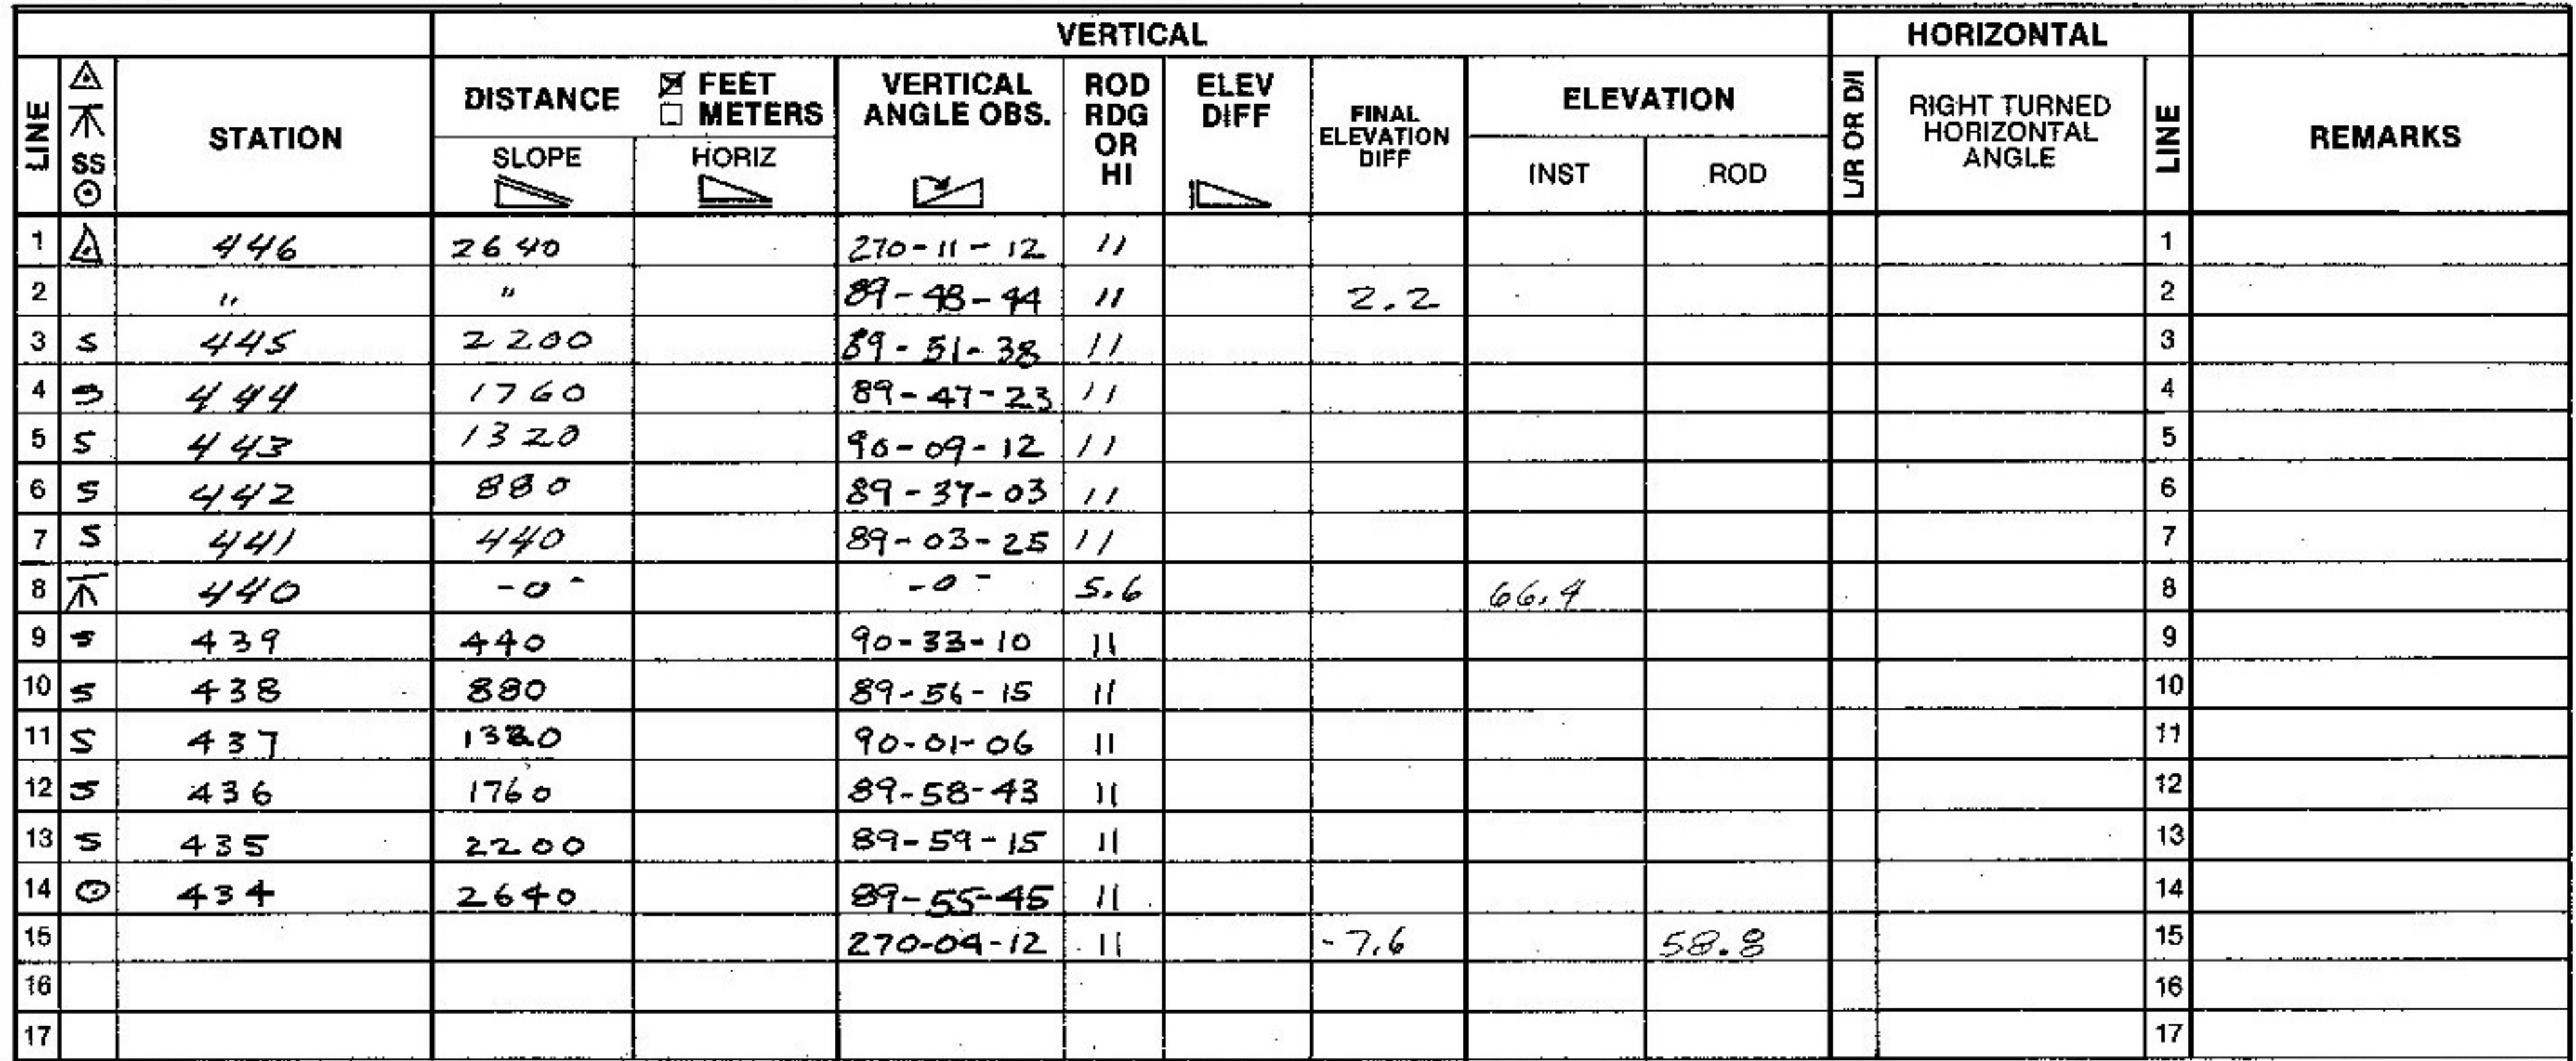 VERTICAL HORIZONTAL
LINE SS STATION DISTANCE FEET METERS SLOPE HORIZ VERTICAL ANGLE OBS. ROD RDG OR HI ELEV DIFF FINAL ELEVATION DIFF ELEVATION INST ROD L/R OR D/I RIGHT TURNED HORIZONTAL ANGLE LINE REMARKS
1 446 2640 270-11-12 " 1
2 " " 89-48-44 " 2.2 2
3 S 445 2200 89-51-38 " 3
4 S 444 1760 89-47-23 " 4
5 S 443 1320 90-09-12 " 5
6 S 442 880 89-37-03 " 6
7 S 441 440 89-03-25 " 7
8 440 -0- -0- 5.6 66.4 8
9 S 439 440 90-33-10 " 9
10 S 438 880 89-56-15 " 10
11 S 437 1320 90-01-06 " 11
12 S 436 1760 89-58-43 " 12
13 S 435 2200 89-59-15 " 13
14 434 2640 89-55-45 " 14
15 270-04-12 " -7.6 58.8 15
16 16
17 17